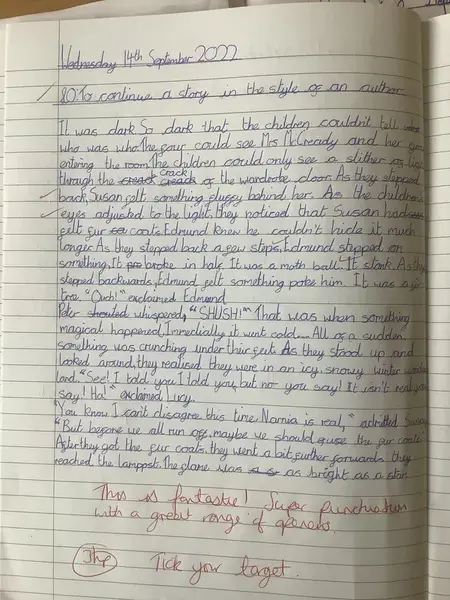 Wednesday 14th September 2022
LO:To continue a story in the style of an author
It was dark. So dark that the children couldn't tell
who was who. The four could see Mrs McCready and her
entering the room. The children could only see a slither of
through the creack crack of the wardrobe door. As they stepped
back, Susan felt something fluffy behind her. As the children
eyes adjusted to the light, they noticed that Susan had
felt fur coats. Edmund knew he couldn't hide it much
longer. As they stepped back a few steps, Edmund stepped on
something. It broke in half. It was a moth ball. It stank. As they
stepped backwards, Edmund felt something poke him. It was a
tree. "Ouch!" exclaimed Edmund.
Peter shouted whispered, "SHUSH!" That was when something
magical happened. Immedially it went cold... All of a sudden
something was crunching under thier feet. As they stood up and
looked around, they realised they were in an icy, snowy winter
land. "See! I told you, I told you, but no you say! It isn't real you
say! Ha!" exclaimed Lucy.
"You know I can't disagree this time. Narnia is real," admitted Susan
"But before we all run off, maybe we should use the fur coats"
After they got the fur coats, they went a bit further forwards they
reached the lamppost. The flame was as bright as a star.
This is fantastic! Super punctuation
with a great range of openers.
3hp Tick your target.